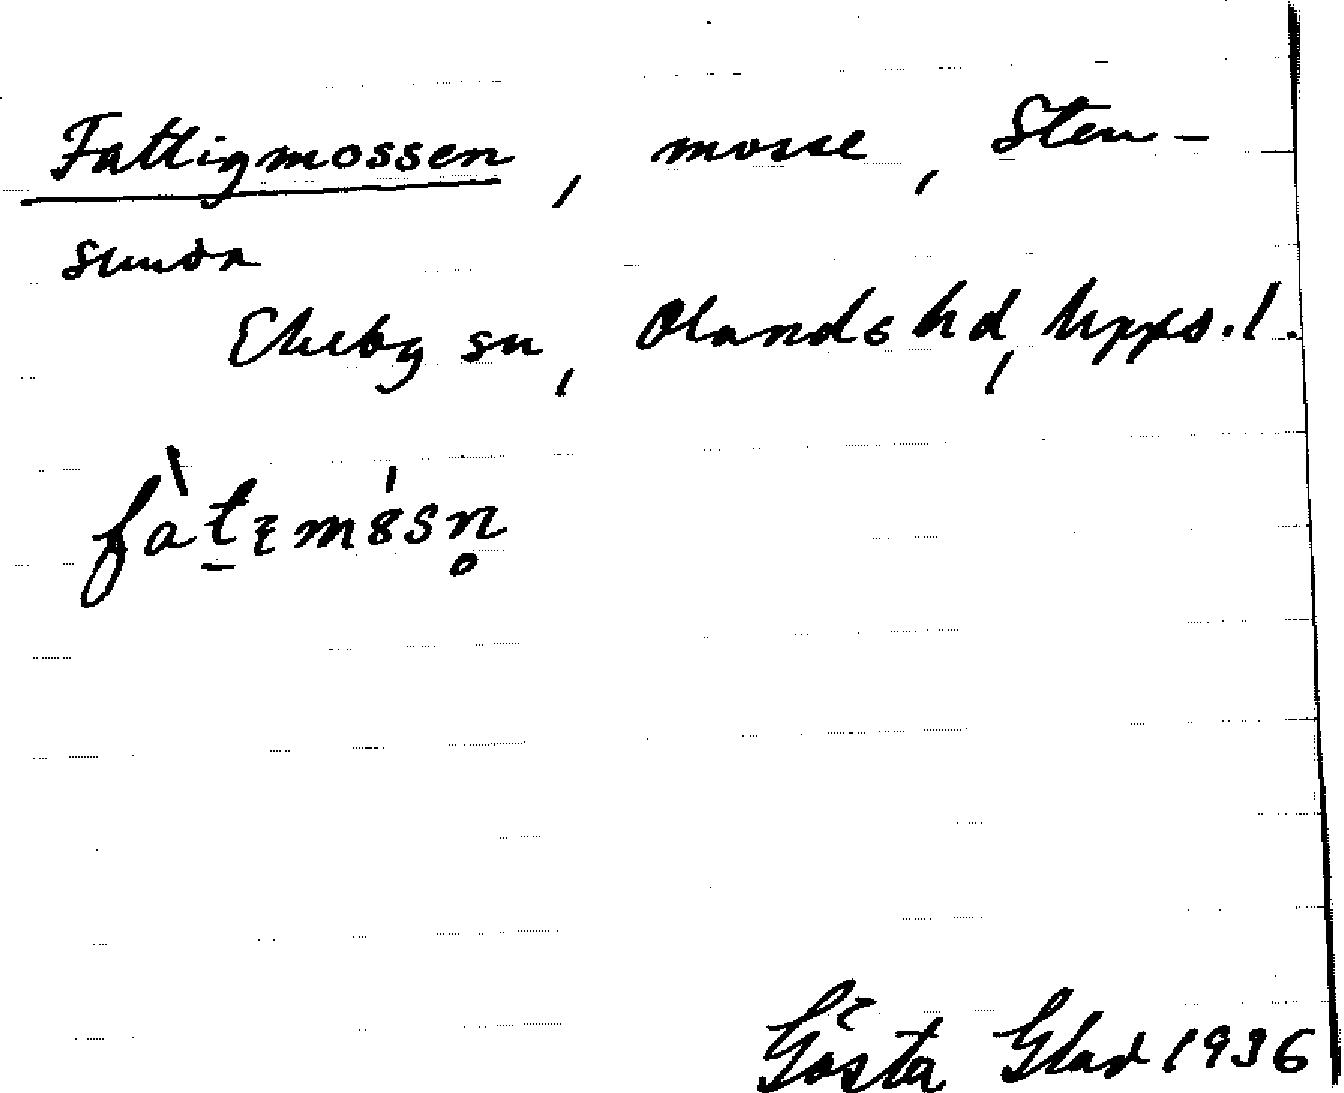 Fattigmossen, mosse, Sten-
sunda
Ekeby sn, Olands hd, Upps. l.
fàtɛmɵ́sn̥
Gösta Glad 1936